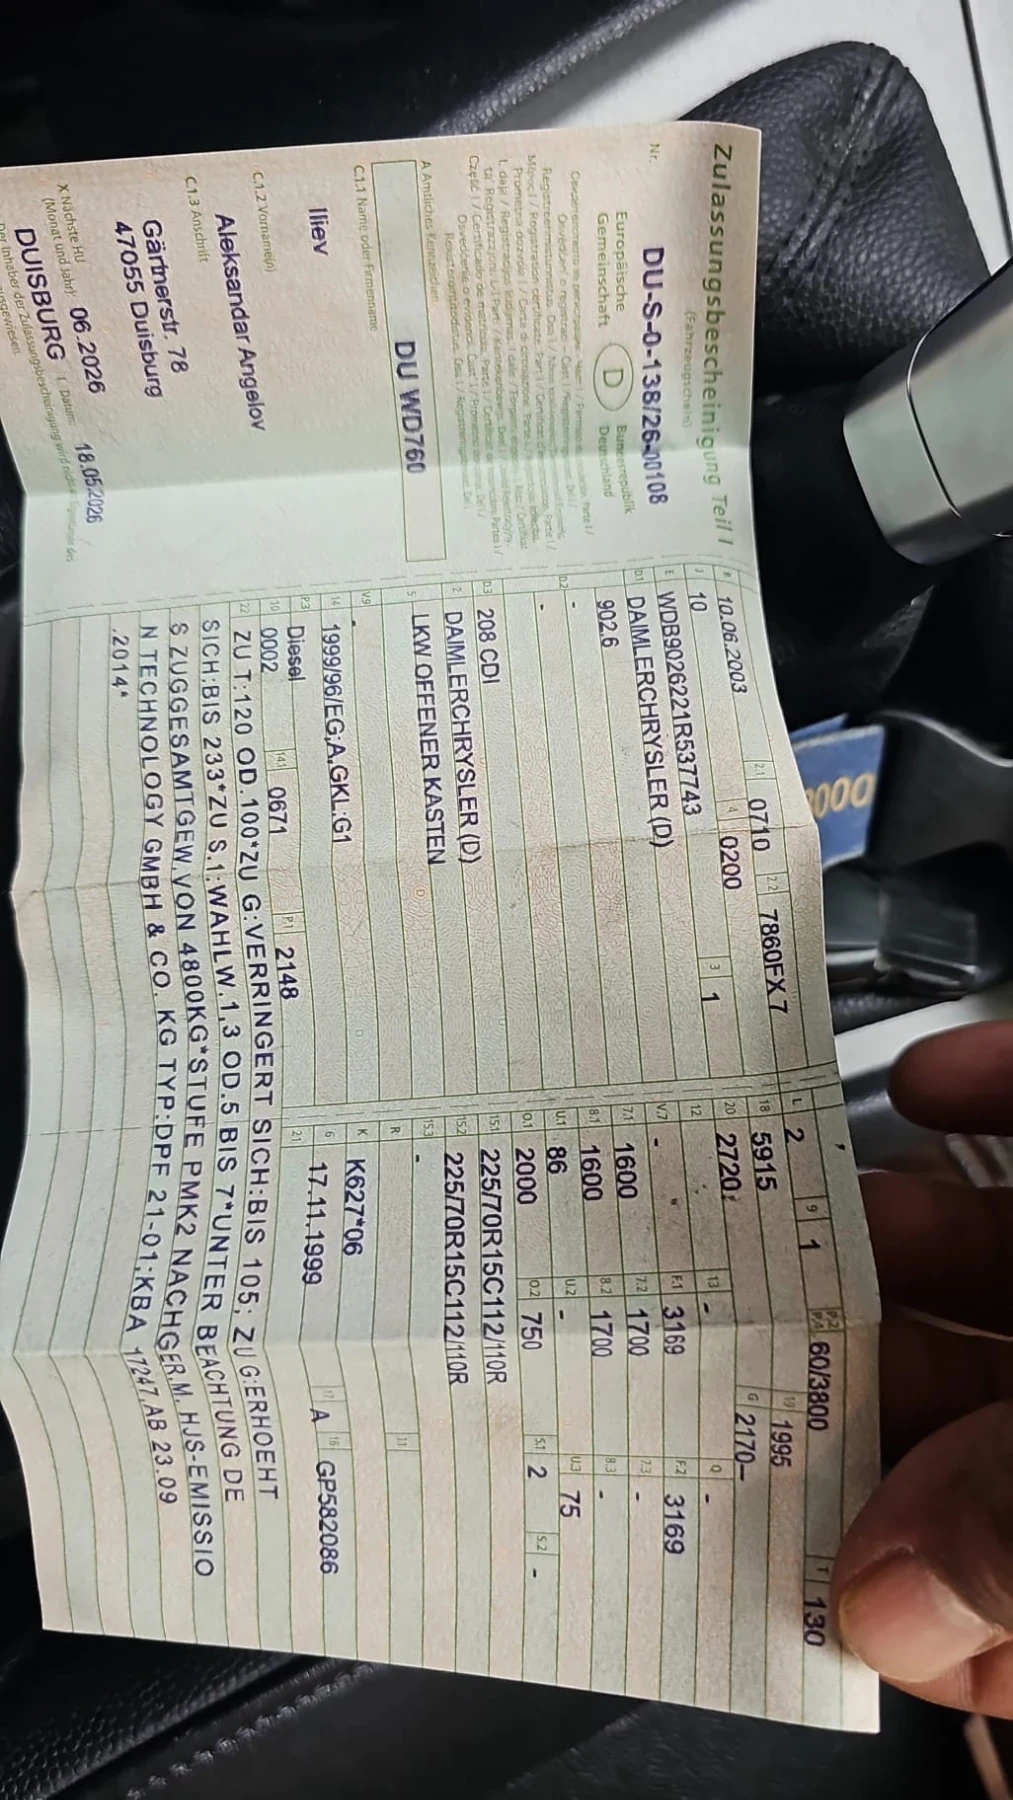 Zulassungsbescheinigung Teil I
(Fahrzeugschein)
Nr. DU-S-0-138/26-00108
Europäische Gemeinschaft
D
Bundesrepublik Deutschland
A Amtliches Kennzeichen
DU WD760
C.1.1 Name oder Firmenname
Iliev
C.1.2 Vorname(n)
Aleksandar Angelov
C.1.3 Anschrift
Gärtnerstr. 78
47055 Duisburg
X Nächste HU
(Monat und Jahr) 06.2026
I Datum: 18.05.2026
DUISBURG
B 10.06.2003 2.1 0710 2.2 7860FX7
J 10 4 0200 3 1
E WDB9026221R537743
D.1 DAIMLERCHRYSLER (D)
902.6
D.2 -
-
D.3 208 CDI
2 DAIMLERCHRYSLER (D)
5 LKW OFFENER KASTEN
V.9 -
14 1999/96/EG;A,GKL:G1
P.3 Diesel
10 0002 14.1 0671 P.1 2148
L 2 9 1 P.2 P.4 60/3800 T 130
18 5915 19 1995
20 2720 G 2170–
12 - 13 - Q -
V.7 - F.1 3169 F.2 3169
7.1 1600 7.2 1700 7.3 -
8.1 1600 8.2 1700 8.3 -
U.1 86 U.2 - U.3 75
O.1 2000 O.2 750 S.1 2 S.2 -
15.1 225/70R15C112/110R
15.2 225/70R15C112/110R
15.3 -
R 11
K K627*06
6 17.11.1999 17 A 16 GP582086
21
22 ZU T:120 OD.100*ZU G:VERRINGERT SICH:BIS 105; ZU G:ERHOEHT
SICH:BIS 233*ZU S.1:WAHLW.1,3 OD.5 BIS 7*UNTER BEACHTUNG DE
S ZUGGESAMTGEW.VON 4800KG*STUFE PMK2 NACHGER.M. HJS-EMISSIO
N TECHNOLOGY GMBH & CO. KG TYP:DPF 21-01;KBA 17247,AB 23.09
.2014*